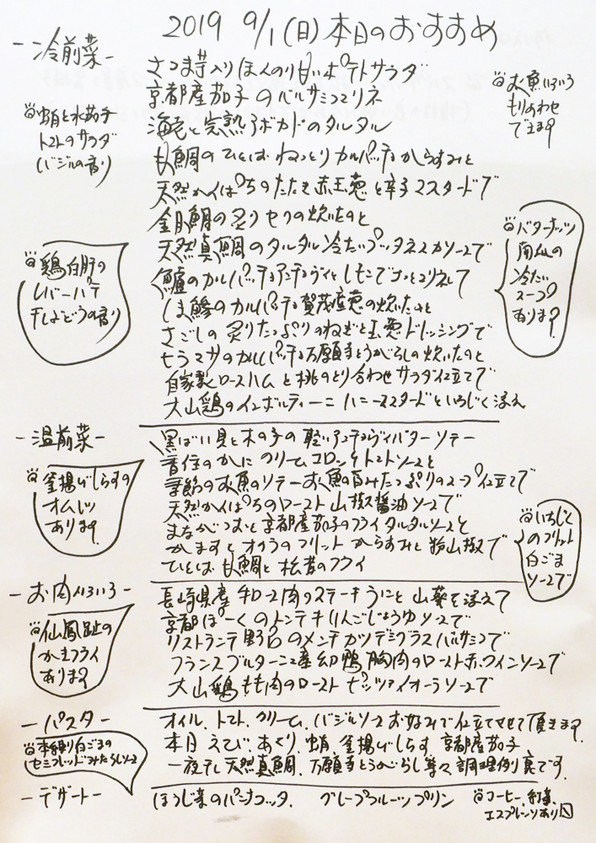 2019 9/1(日)本日のおすすめ
-冷前菜-
さつま芋入りほんのり甘いポテトサラダ
京都産茄子のバルサミコマリネ
海老と完熟アボカドのタルタル
甘鯛のひとしおねっとりカルパッチョからすみと
天然かんぱちのたたき赤玉葱と辛子マスタードで
金目鯛の炙りセリの炊いたのと
天然真鯛のタルタル冷たいプッタネスカソースで
鱧のカルパッチョアンチョヴィとしそでさっとマリネして
しま鯵のカルパッチョ賀茂茄子の炊いたのと
さごしの炙りたっぷりのねぎと玉葱ドレッシングで
ヒラマサのカルパッチョ万願寺とうがらしの炊いたのと
自家製ロースハムと桃のとり合わせサラダ仕立てで
大山鶏のインボルティーニ ハニーマスタードといちじく添え
蛸と水茄子
トマトのサラダ
バジルの香り
お魚いろいろ
もりあわせ
できます
鶏白肝の
レバーパテ
干しぶどうの香り
バターナッツ
南仏の
冷たい
スープ
あります
-温前菜-
黒ばい貝と木の子の軽いアンチョヴィバターソテー
香住のかにクリームコロッケトマトソースと
季節のお魚のソテーお魚の旨みたっぷりのスープ仕立てで
天然かんぱちのロースト山椒醤油ソースで
まながつおと京都産茄子のフライタルタルソースと
かますとオクラのフリット からすみと粉山椒で
ひとしお甘鯛と松茸のフライ
釜揚げしらすの
オムレツ
あります
いちじく
のフリット
白ごま
ソースで
-お肉いろいろ-
長崎県産和牛肉のステーキうにと山葵を添えて
京都ぽーくのトンテキりんごじょうゆソースで
リストランテ野呂のメンチカツデミグラスバルサミコで
フランスブルターニュ産幼鴨胸肉のローストホワインソースで
大山鶏もも肉のロースト ピッツァイオーラソースで
仙鳳趾の
かきフライ
あります
-パスタ-
オイル、トマト、クリーム、バジルソースお好みで仕立てさせて頂きます。
本日 えび、あさり、蛸、釜揚げしらす、京都産茄子
一夜干し天然真鯛、万願寺とうがらし等々 調理例裏です。
本練り白ごまの
セミフレッドみたらしソース
-デザート-
ほうじ茶のパンナコッタ、 グレープフルーツプリン
コーヒー、紅茶、
エスプレッソあり